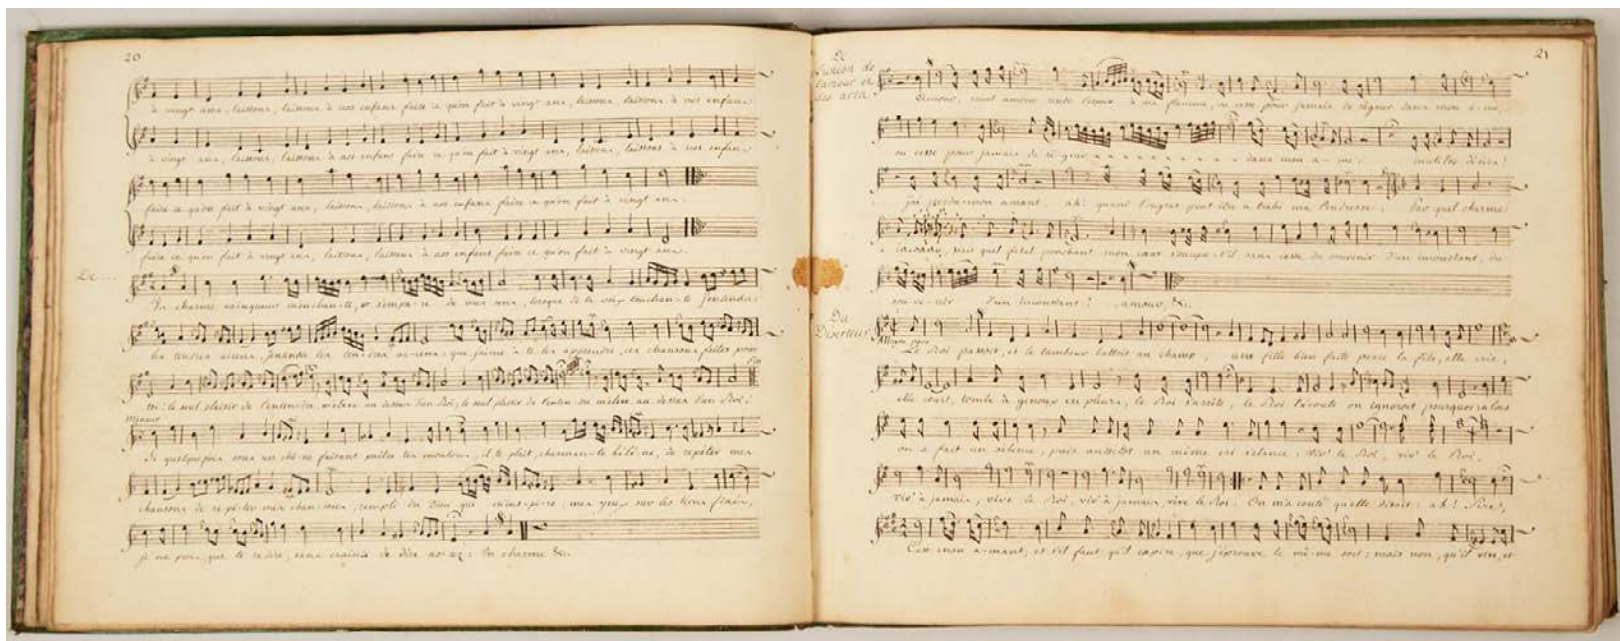 20
à vingt ans, laissons, laissons à nos enfans faire ce qu'on fait à vingt ans, laissons, laissons à nos enfans
à vingt ans, laissons, laissons à nos enfans faire ce qu'on fait à vingt ans, laissons, laissons à nos enfans
faire ce qu'on fait à vingt ans, laissons, laissons à nos enfans faire ce qu'on fait à vingt ans.
faire ce qu'on fait à vingt ans, laissons, laissons à nos enfans faire ce qu'on fait à vingt ans.
De
Un charme vainqueur m'enchan-te, et s'empa-re de mes sens, lorsque de ta voix touchan-te j'entends
les tendres accens, j'entends les ten-dres ac-cens: que j'aime à te les apprendre, ces chansons faites pour
toi: le seul plaisir de t'enten-dre, m'élève au dessus d'un Roi, le seul plaisir de t'enten-dre m'élève au dessus d'un Roi:
mineur
Si quelquefois sous un chê-ne faisant paître tes moutons, il te plait, charman-te de répéter mes
chansons de ré-pé-ter mes chan-sons, rempli du Dieu qui m'ins-pi-re, mes yeux sur les tiens fixés,
je ne puis que te redire, sans crainte de dire assez: Un charme &c.
21
De
l'union de
l'amour et
des arts
amour, cruel amour ma flamme, ou cesse pour jamais de régner dans mon â-me,
ou cesse pour jamais de ré-gner dans mon â-me: inutiles désirs!
j'ai perdu mon amant. ah! quand l'ingrat peut-être a trahi ma tendresse. Par quel charme
mais quel fatal penchant mon coeur s'occupe-t'il sans cesse du souvenir d'un inconstant, du
sou-ve-nir d'un inconstant! amour, &c.
Du
Déserteur
Le Roi passoit, et le tambour battoit au champ, une fille bien faite perce la file, elle crie,
elle court, tombe à genoux en pleurs, le Roi s'arrête, le Roi l'écoute on ignoroit pourquoi alors
on a fait un silence, puis aussitôt un même cri s'élance, viv' le Roi, viv' le Roi,
viv' à jamais, vive le Roi, viv' à jamais, vive le Roi. On m'a conté qu'elle disait: ah! Sire,
C'est mon a-mant, et s'il faut qu'il expire, que j'éprouve le mê-me sort: mais non, qu'il vive, et